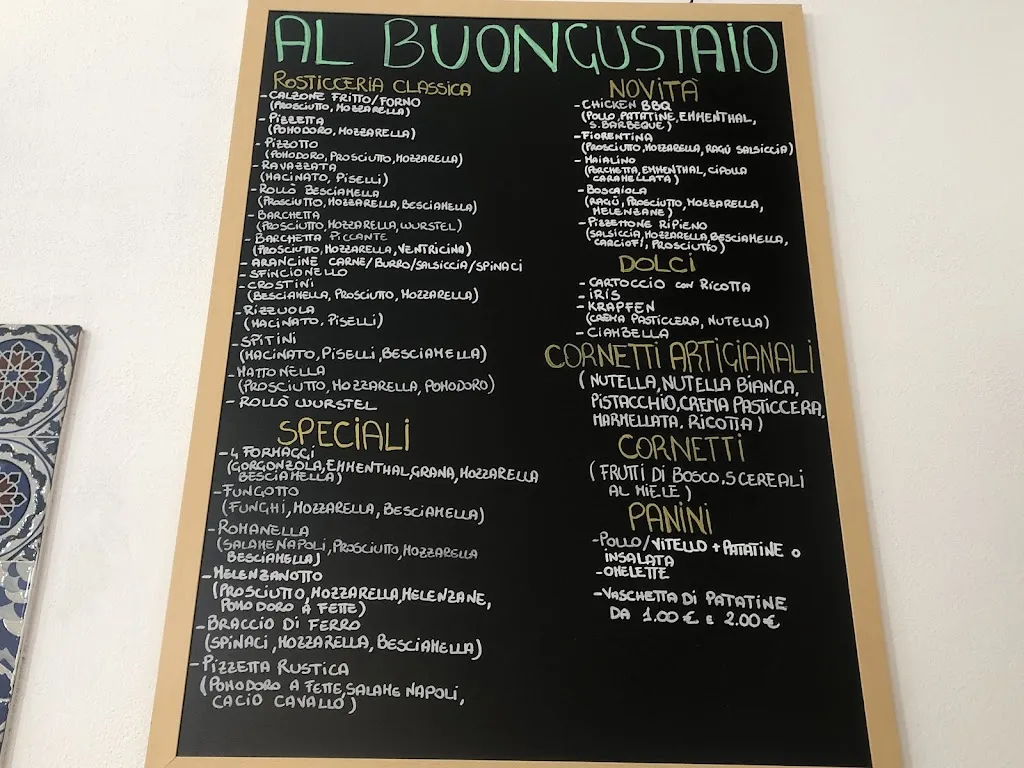 AL BUONGUSTAIO
ROSTICCERIA CLASSICA
- CALZONE FRITTO/FORNO
(PROSCIUTTO, MOZZARELLA)
- PIZZETTA
(POMODORO, MOZZARELLA)
- PIZZOTTO
(POMODORO, PROSCIUTTO, MOZZARELLA)
- RAVAZZATA
(MACINATO, PISELLI)
- ROLLÒ BESCIAMELLA
(PROSCIUTTO, MOZZARELLA, BESCIAMELLA)
- BARCHETTA
(PROSCIUTTO, MOZZARELLA, WURSTEL)
- BARCHETTA PICCANTE
(PROSCIUTTO, MOZZARELLA, VENTRICINA)
- ARANCINE CARNE/BURRO/SALSICCIA/SPINACI
- SFINCIONELLO
- CROSTINI
(BESCIAMELLA, PROSCIUTTO, MOZZARELLA)
- RIZZUOLA
(MACINATO, PISELLI)
- SPITINI
(MACINATO, PISELLI, BESCIAMELLA)
- MATTONELLA
(PROSCIUTTO, MOZZARELLA, POMODORO)
- ROLLÒ WURSTEL
SPECIALI
- 4 FORMAGGI
(GORGONZOLA, EMMENTHAL, GRANA, MOZZARELLA
BESCIAMELLA)
- FUNGOTTO
(FUNGHI, MOZZARELLA, BESCIAMELLA)
- ROMANELLA
(SALAME NAPOLI, PROSCIUTTO, MOZZARELLA
BESCIAMELLA)
- MELENZANOTTO
(PROSCIUTTO, MOZZARELLA, MELENZANE,
POMODORO A FETTE)
- BRACCIO DI FERRO
(SPINACI, MOZZARELLA, BESCIAMELLA)
- PIZZETTA RUSTICA
(POMODORO A FETTE, SALAME NAPOLI,
CACIO CAVALLO)
NOVITÀ
- CHICKEN BBQ
(POLLO, PATATINE, EMMENTHAL,
S. BARBEQUE)
- FIORENTINA
(PROSCIUTTO, MOZZARELLA, RAGÙ SALSICCIA)
- MAIALINO
(PORCHETTA, EMMENTHAL, CIPOLLA
CARAMELLATA)
- BOSCAIOLA
(RAGÙ, PROSCIUTTO, MOZZARELLA,
MELENZANE)
- PIZZETTONE RIPIENO
(SALSICCIA, MOZZARELLA, BESCIAMELLA,
CARCIOFI, PROSCIUTTO)
DOLCI
- CARTOCCIO CON RICOTTA
- IRIS
- KRAPFEN
(CREMA PASTICCERA, NUTELLA)
- CIAMBELLA
CORNETTI ARTIGIANALI
(NUTELLA, NUTELLA BIANCA,
PISTACCHIO, CREMA PASTICCERA,
MARMELLATA, RICOTTA)
CORNETTI
(FRUTTI DI BOSCO, 5 CEREALI
AL MIELE)
PANINI
- POLLO/VITELLO + PATATINE O
INSALATA
- OMELETTE
- VASCHETTA DI PATATINE
DA 1.00 € E 2.00 €